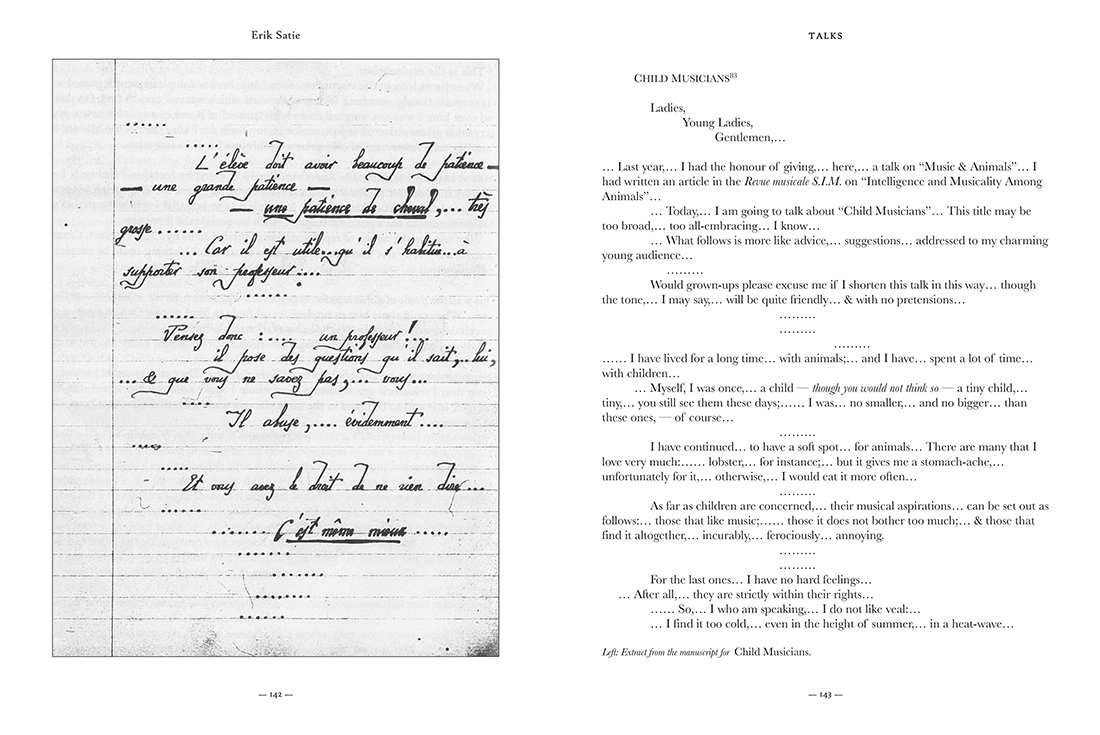 Erik Satie
......
.....
L'élève doit avoir beaucoup de patience —
— une grande patience —
— une patience de cheval,... très
grosse......
... Car il est utile...qu'il s'habitue...à
supporter son professeur:...
......
......
Pensez donc :.... un professeur!...
il pose des questions qu'il sait,... lui,
... & que vous ne savez pas,... vous...
.....
Il abuse,.... évidemment....
.....
.....
Et vous avez le droit de ne rien dire...
......
....... C'est même mieux .....
........
........
........
......
— 142 —
TALKS
CHILD MUSICIANS83
Ladies,
Young Ladies,
Gentlemen,…
… Last year,… I had the honour of giving,… here,… a talk on “Music & Animals”… I
had written an article in the Revue musicale S.I.M. on “Intelligence and Musicality Among
Animals”…
… Today,… I am going to talk about “Child Musicians”… This title may be
too broad,… too all-embracing… I know…
… What follows is more like advice,… suggestions… addressed to my charming
young audience…
………
Would grown-ups please excuse me if I shorten this talk in this way… though
the tone,… I may say,… will be quite friendly… & with no pretensions…
………
………
………
…… I have lived for a long time… with animals;… and I have… spent a lot of time…
with children…
… Myself, I was once,… a child — though you would not think so — a tiny child,…
tiny,… you still see them these days;…… I was… no smaller,… and no bigger… than
these ones, — of course…
………
I have continued… to have a soft spot… for animals… There are many that I
love very much:…… lobster,… for instance;… but it gives me a stomach-ache,…
unfortunately for it,… otherwise,… I would eat it more often…
………
As far as children are concerned,… their musical aspirations… can be set out as
follows:… those that like music;…… those it does not bother too much;… & those that
find it altogether,… incurably,… ferociously… annoying.
………
………
For the last ones… I have no hard feelings…
… After all,… they are strictly within their rights…
…… So,… I who am speaking,… I do not like veal:…
… I find it too cold,… even in the height of summer,… in a heat-wave…
Left: Extract from the manuscript for Child Musicians.
— 143 —